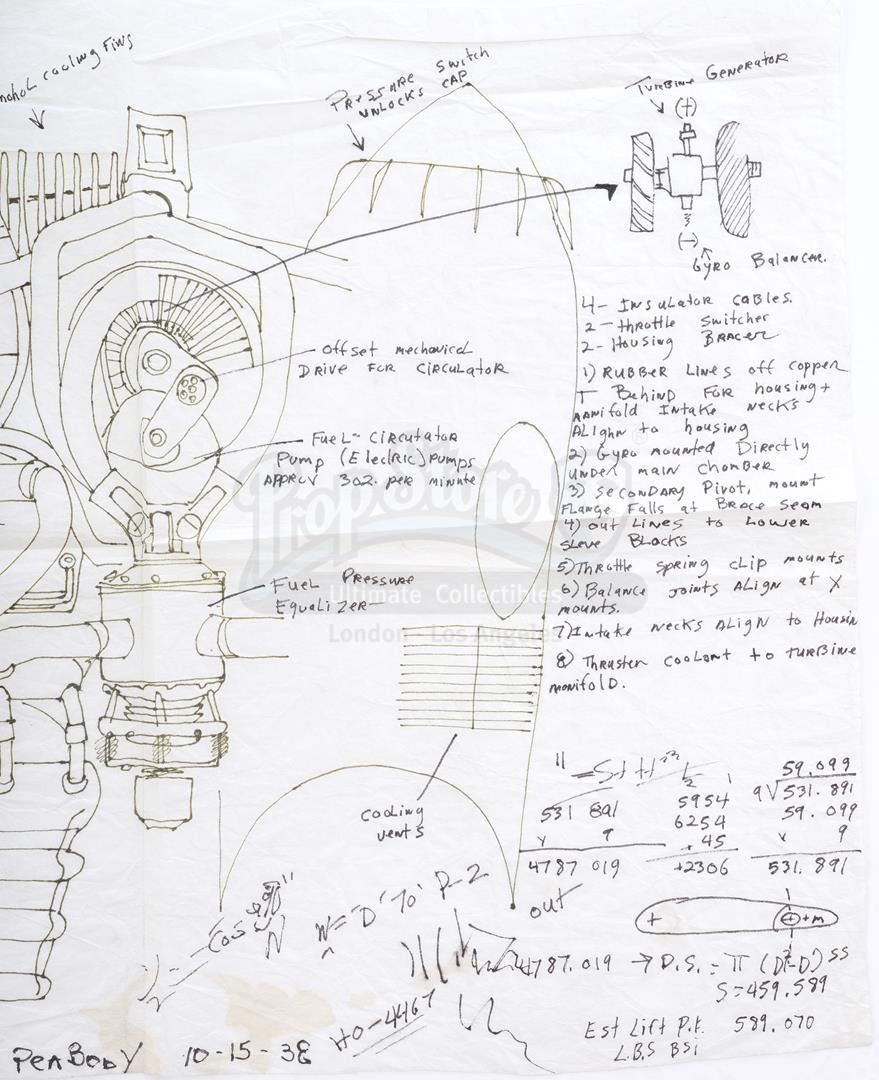 cooling Fins
Pressure Switch
unlocks cap
Turbine Generator
(+)
(-)
Gyro Balancer.
4- Insulator cables.
2- throttle switcher
2- Housing Bracer
1) Rubber Lines off copper
T Behind For housing +
manifold Intake necks
Alighn to housing
2) Gyro mounted Directly
under main chamber
3) Secondary Pivot, mount
Flange Falls at Brace Seam
4) out Lines to Lower
sleve Blocks
5) Throttle spring clip mounts
6) Balance joints Align at X
mounts.
7) Intake necks Align to Housin
8) Thruster coolant to turbine
manifold.
Offset mechanical
Drive for circulator
Fuel- Circutator
Pump (Electric) pumps
Approx 3oz. per minute
Fuel Pressure
Equalizer
PropStore
Ultimate Collectibles
London - Los Angeles
cooling
vents
531 891
x 9
4787 019
5954
6254
.45
+2306
59.099
9√531.891
59.099
x 9
531.891
out
+
+m
N="D' To' P-2
4787.019 → D.S. = π (D²-D) SS
S=459.589
Est Lift P.F. 589.070
L.B.S BSi
HO-4467
PeaBody 10-15-38